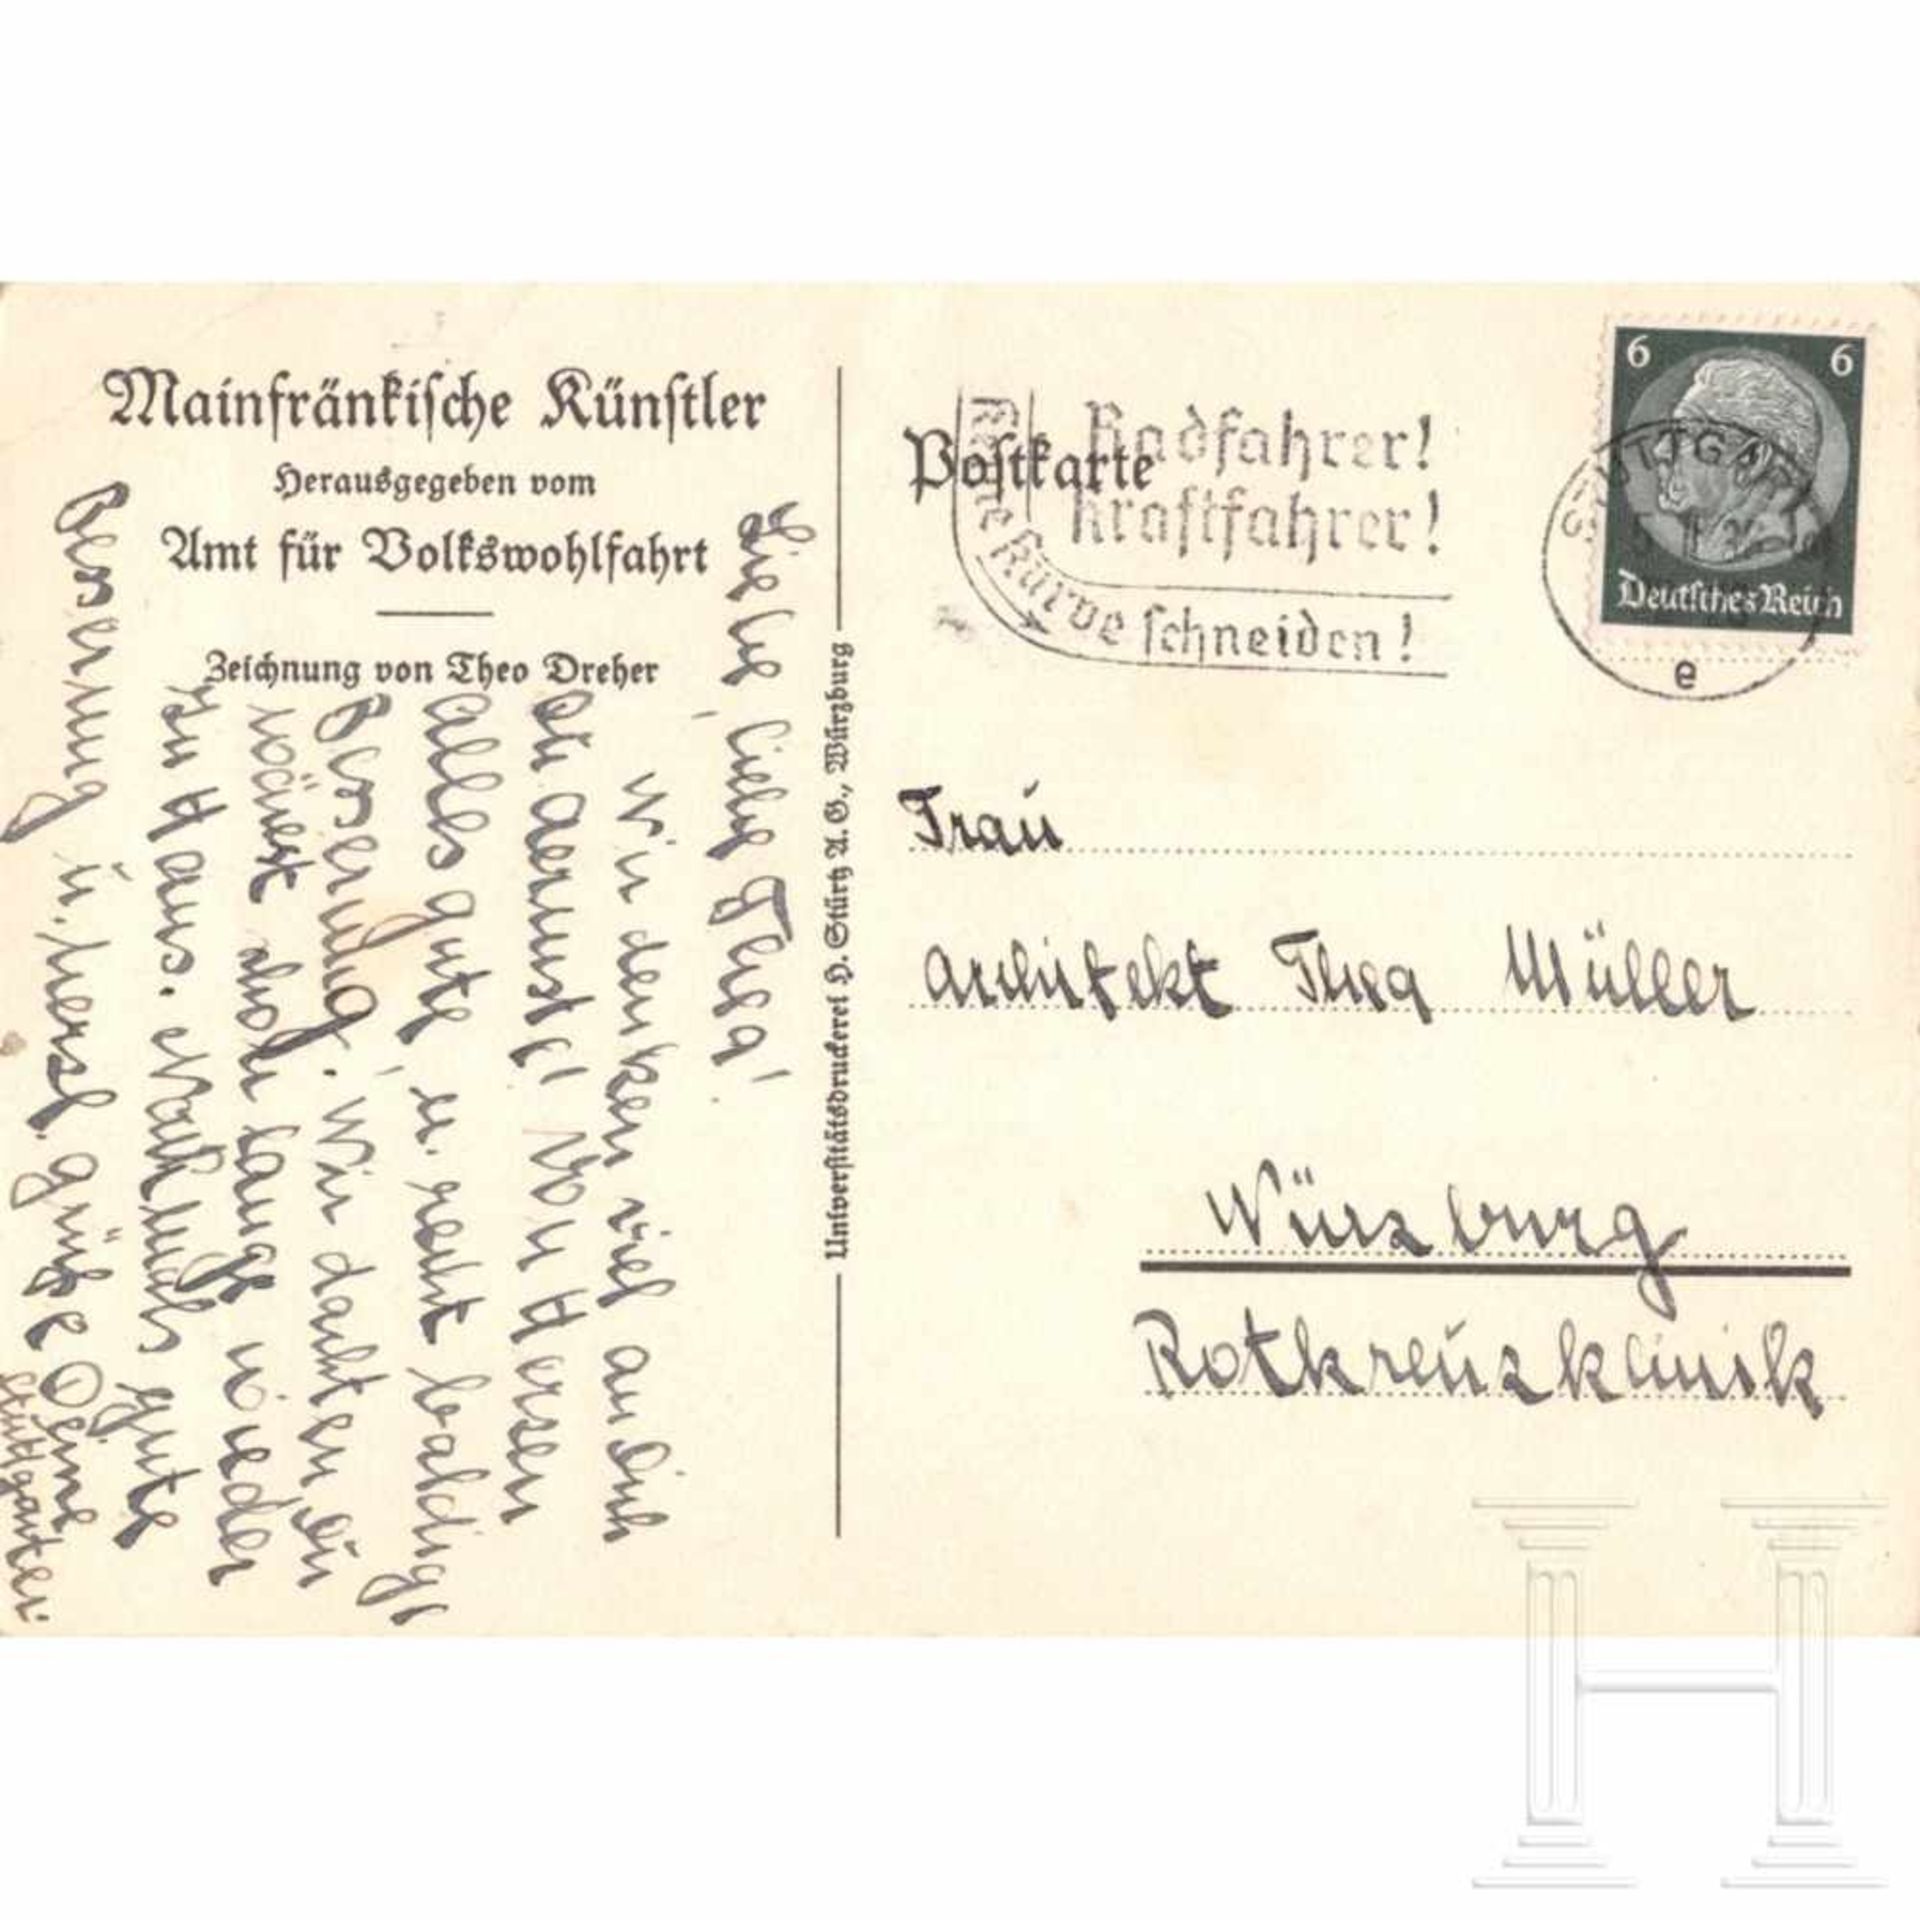 Mainfränkische Künstler
Herausgegeben vom
Amt für Volkswohlfahrt
Zeichnung von Theo Dreher
Liebe, liebe Thea!
Wir denken viel an Dich
Du Aermste! Von Herzen
alles gute, u. recht baldige
Besserung. Wir dachten, Du
wärest schon lange wieder
zu Haus. Nochmals gute
Besserung u. herzl. grüße Deine
Stuttgarter.
Universitätsdruckerei H. Stürtz A. G., Würzburg
Postkarte
Radfahrer!
Kraftfahrer!
Keine Kurve schneiden!
6 6
Deutsches Reich
STUTTGART
e
Frau
Architekt Thea Müller
Würzburg
Rotkreuzklinik
H